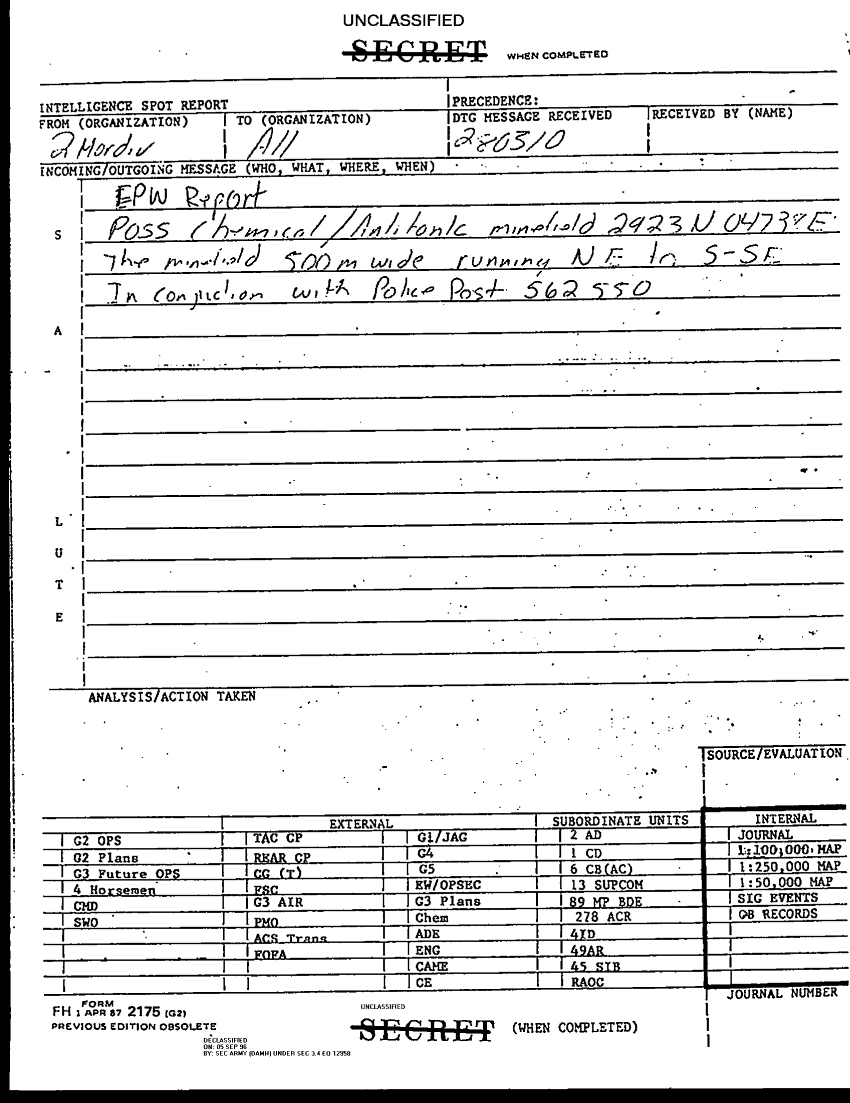 UNCLASSIFIED
SECRET WHEN COMPLETED
INTELLIGENCE SPOT REPORT
PRECEDENCE:
FROM (ORGANIZATION) TO (ORGANIZATION) DTG MESSAGE RECEIVED RECEIVED BY (NAME)
All 280310
INCOMING/OUTGOING MESSAGE (WHO, WHAT, WHERE, WHEN)
EPW Report
S Poss Chemical/Antitank minefield 2923N 04737E
The minefield 500m wide running NE to S-SE
In conjuction with Police Post 562550
A
L
U
T
E
ANALYSIS/ACTION TAKEN
SOURCE/EVALUATION
EXTERNAL SUBORDINATE UNITS INTERNAL
G2 OPS TAC CP G1/JAG 2 AD JOURNAL
G2 Plans REAR CP G4 1 CD 1:100,000 MAP
G3 Future OPS CG (T) G5 6 CB(AC) 1:250,000 MAP
4 Horsemen FSC EW/OPSEC 13 SUPCOM 1:50,000 MAP
CMD G3 AIR G3 Plans 89 MP BDE SIG EVENTS
SWO PMO Chem 278 ACR OB RECORDS
ACS Trans ADE 4ID
EOFA ENG 49AR
CAME 45 SIB
CE RAOC
JOURNAL NUMBER
FH FORM 1 APR 87 2175 (G2)
PREVIOUS EDITION OBSOLETE
UNCLASSIFIED
SECRET (WHEN COMPLETED)
DECLASSIFIED
ON: 05 SEP 96
BY: SEC ARMY (DAMH) UNDER SEC 3.4 EO 12958